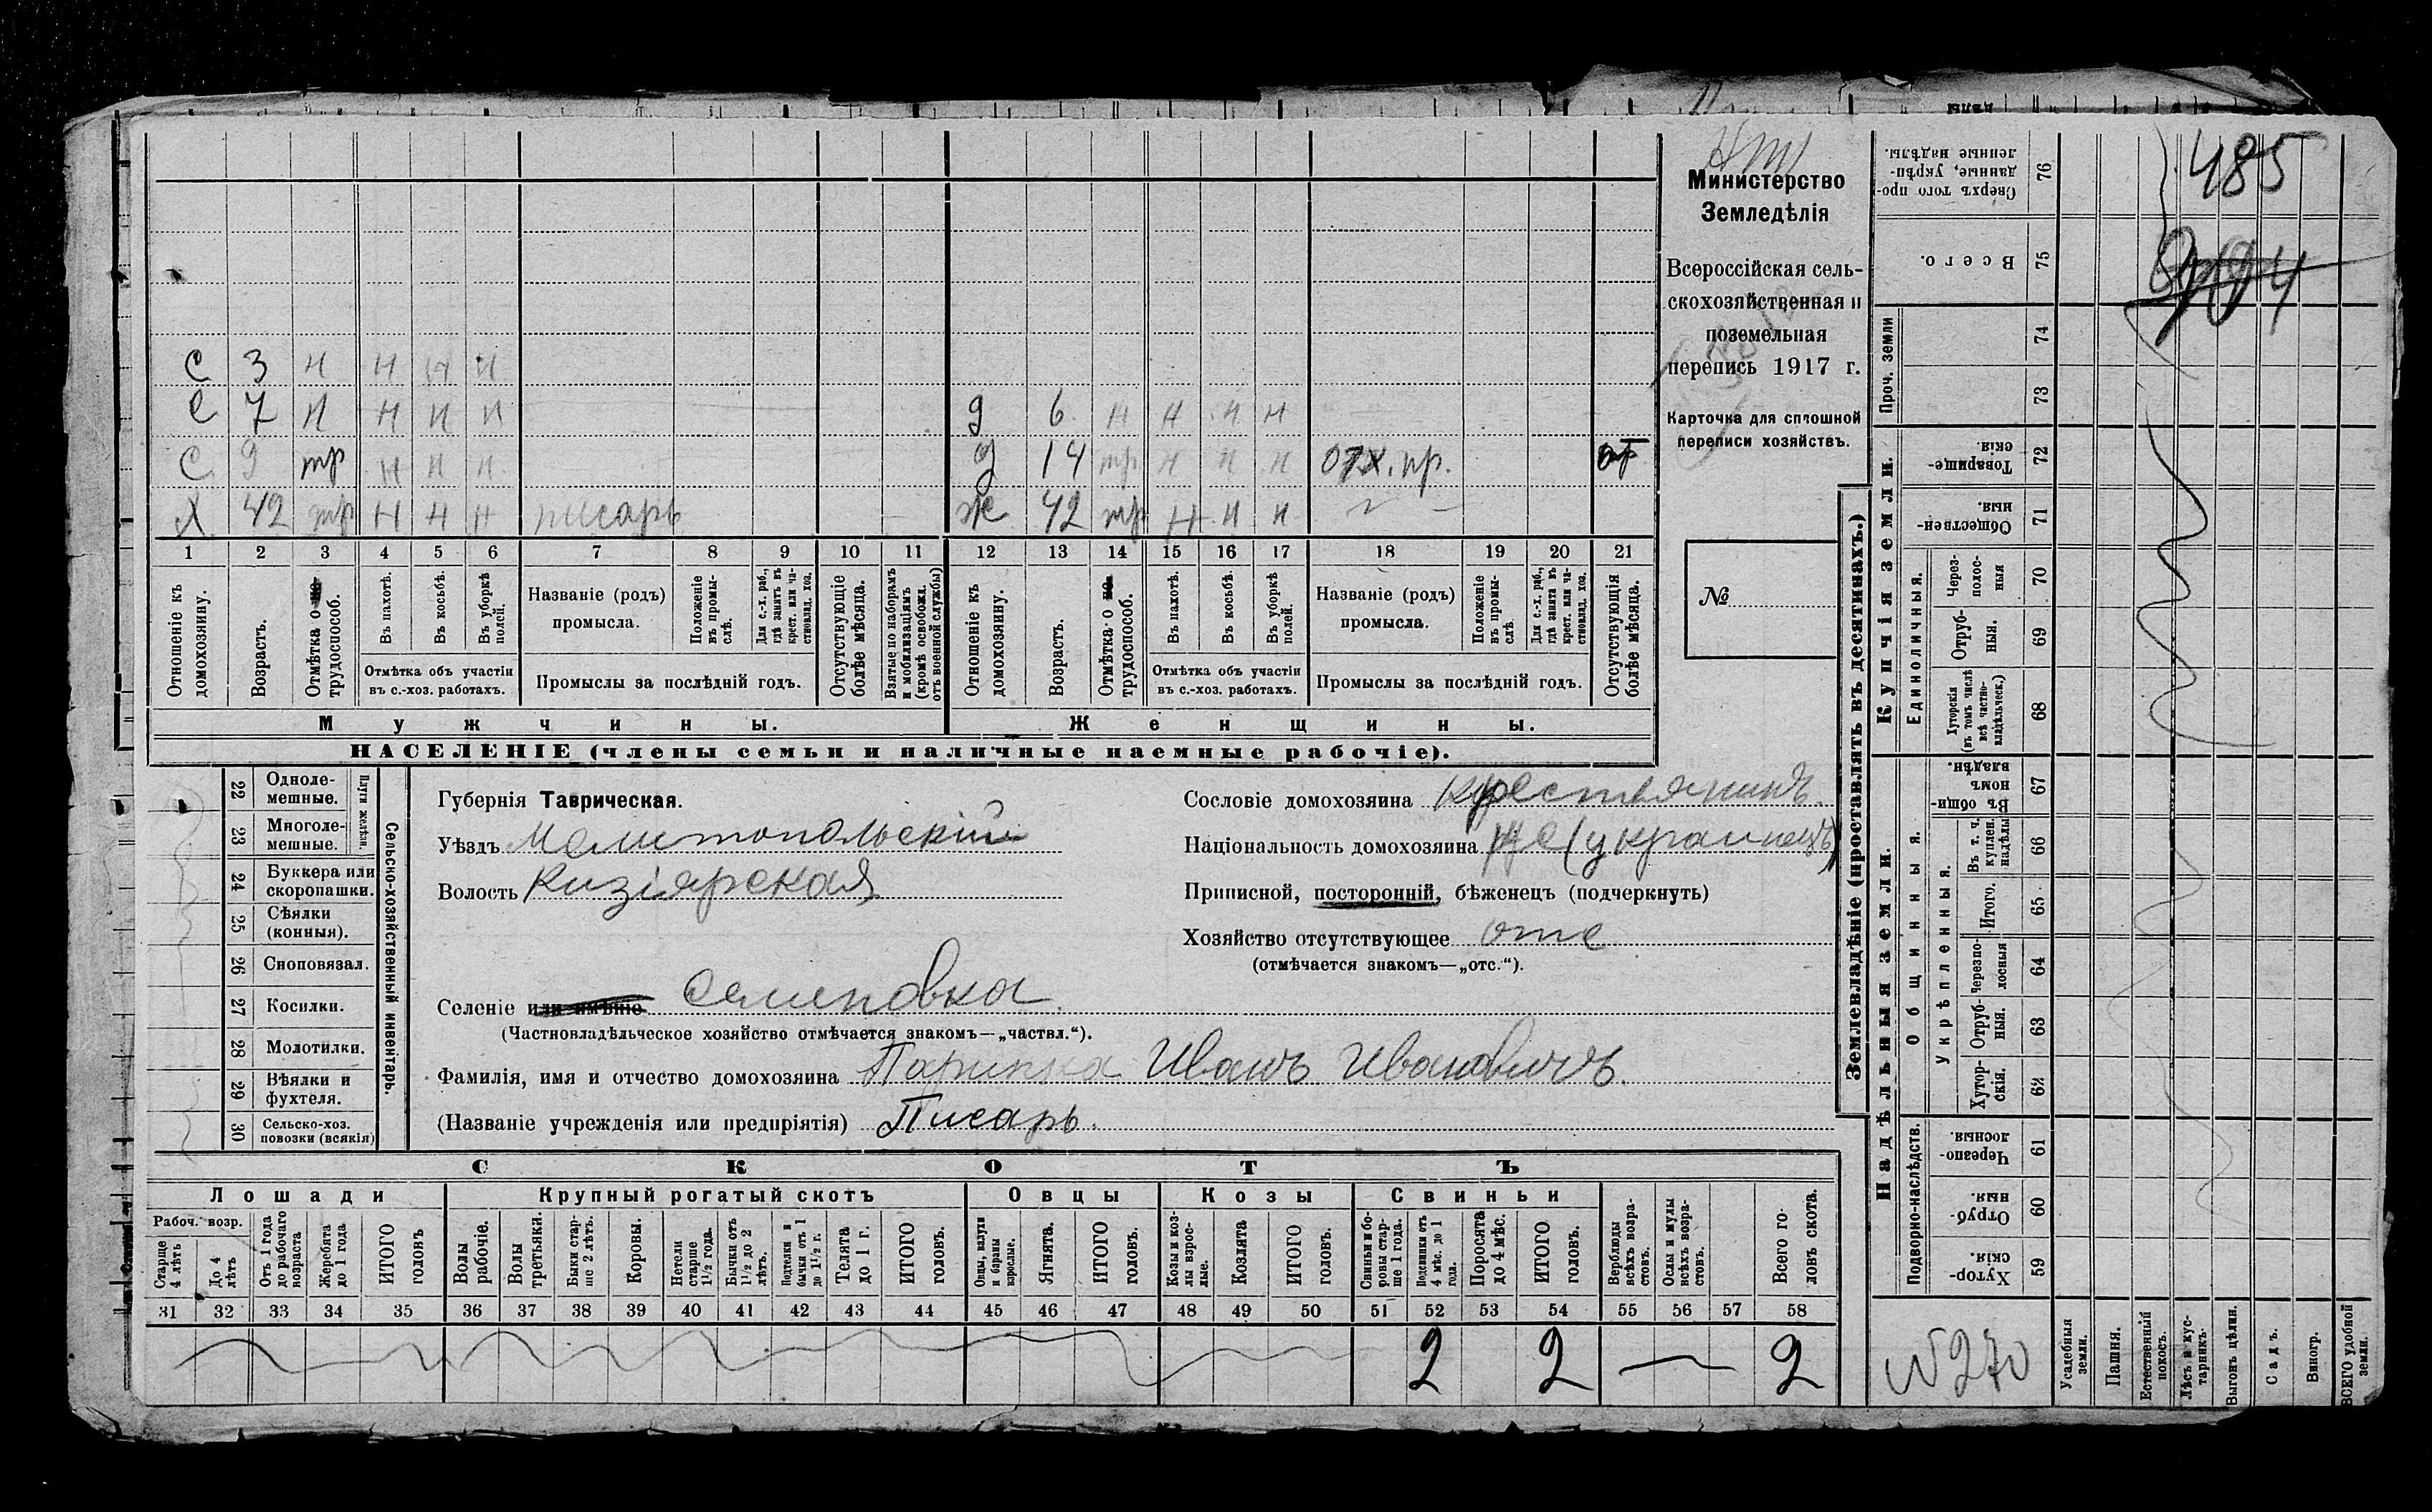 дѣлы
Министерство
Земледѣлія
Всероссійская сель-
скохозяйственная и
поземельная
перепись 1917 г.
Карточка для сплошной
переписи хозяйствъ.
№
С 3 н н н н
С 7 н н н н д 6 н н н н
С 9 тр н н н д 14 тр н н н отх. пр.
Х 42 тр н н н писарь ж 42 тр н н н
1 2 3 4 5 6 7 8 9 10 11 12 13 14 15 16 17 18 19 20 21
Отношеніе къ домохозяину.
Возрастъ.
Отмѣтка о не трудоспособ.
Въ пахотѣ.
Въ косьбѣ.
Въ уборкѣ полей.
Отмѣтка объ участіи въ с.-хоз. работахъ.
Названіе (родъ) промысла.
Положеніе въ промыслѣ.
Для с.-х. раб., гдѣ занятъ въ крест. или частновлад. хоз.
Промыслы за послѣдній годъ.
Отсутствующіе болѣе мѣсяца.
Взятые по наборамъ и мобилизаціямъ (кромѣ освобожд. отъ военной службы)
Отношеніе къ домохозяину.
Возрастъ.
Отмѣтка о не трудоспособ.
Въ пахотѣ.
Въ косьбѣ.
Въ уборкѣ полей.
Отмѣтка объ участіи въ с.-хоз. работахъ.
Названіе (родъ) промысла.
Положеніе въ промыслѣ
Для с.-х. раб., гдѣ занята въ крест. или частновлад. хоз.
Промыслы за послѣдній годъ.
Отсутствующія болѣе мѣсяца.
Мужчины. Женщины.
НАСЕЛЕНІЕ (члены семьи и наличные наемные рабочіе).
22 Одноле-мешные.
23 Многоле-мешные.
Плуги желѣзн.
24 Буккера или скоропашки.
25 Сѣялки (конныя).
26 Сноповязал.
27 Косилки.
28 Молотилки.
29 Вѣялки и фухтеля.
30 Сельско-хоз. повозки (всякія)
Сельско-хозяйственный инвентарь.
Губернія Таврическая.
Уѣздъ Мелитопольскій
Волость Кизіярская
Селеніе или имѣніе Семеновка.
(Частновладѣльческое хозяйство отмѣчается знакомъ—„частвл.“).
Фамилія, имя и отчество домохозяина Иванъ Ивановичъ.
(Названіе учрежденія или предпріятія) Писарь.
Сословіе домохозяина крестьянинъ.
Національность домохозяина (украинецъ)
Приписной, посторонній, бѣженецъ (подчеркнуть)
Хозяйство отсутствующее отс
(отмѣчается знакомъ—„отс.“).
СКОТЪ
Лошади Крупный рогатый скотъ Овцы Козы Свиньи
Рабоч. возр.
Старше 4 лѣтъ
До 4 лѣтъ
Отъ 1 года до рабочаго возраста
Жеребята до 1 года
ИТОГО головъ
Волы рабочіе.
Волы третьяки.
Быки старше 2 лѣтъ.
Коровы.
Нетели старше 1½ года.
Бычки отъ 1½ до 2 лѣтъ.
Подтелки и бычки отъ 1 до 1½ г.
Телята до 1 г.
ИТОГО головъ.
Овцы, валухи и бараны взрослые.
Ягнята.
ИТОГО головъ.
Козы и козлы взрослые.
Козлята
ИТОГО головъ.
Свиньи и боровы старше 1 года.
Подсвинки отъ 4 мѣс. до 1 года.
Поросята до 4 мѣс.
ИТОГО головъ.
Верблюды всѣхъ возрастовъ.
Ослы и мулы всѣхъ возрастовъ.
Всего головъ скота.
31 32 33 34 35 36 37 38 39 40 41 42 43 44 45 46 47 48 49 50 51 52 53 54 55 56 57 58
2 2 — 2
Землевладѣніе (проставлять въ десятинахъ.)
Надѣльныя земли. Купчія земли. Проч. земли
Подворно-наслѣдств.
Общинныя.
Укрѣпленныя.
Единоличныя.
Сверхъ того проданные, укрѣпленные надѣлы. 76
Всего. 75
74
73
Товарищескія. 72
Общественныя. 71
Черезполосныя 70
Отрубныя. 69
Хуторскія (въ томъ числѣ всѣ частновладѣльческ.) 68
Въ общинномъ владѣн. 67
Въ т. ч. куплен. надѣлы 66
Итого. 65
Черезполосныя 64
Отрубныя. 63
Хуторскія. 62
Черезполосныя 61
Отрубныя. 60
Хуторскія. 59
485
№ 270
Усадебныя земли.
Пашня.
Естественный покосъ.
Лѣсъ и кустарникъ.
Выгонъ цѣлин.
Садъ.
Виногр.
ВСЕГО удобной земли.